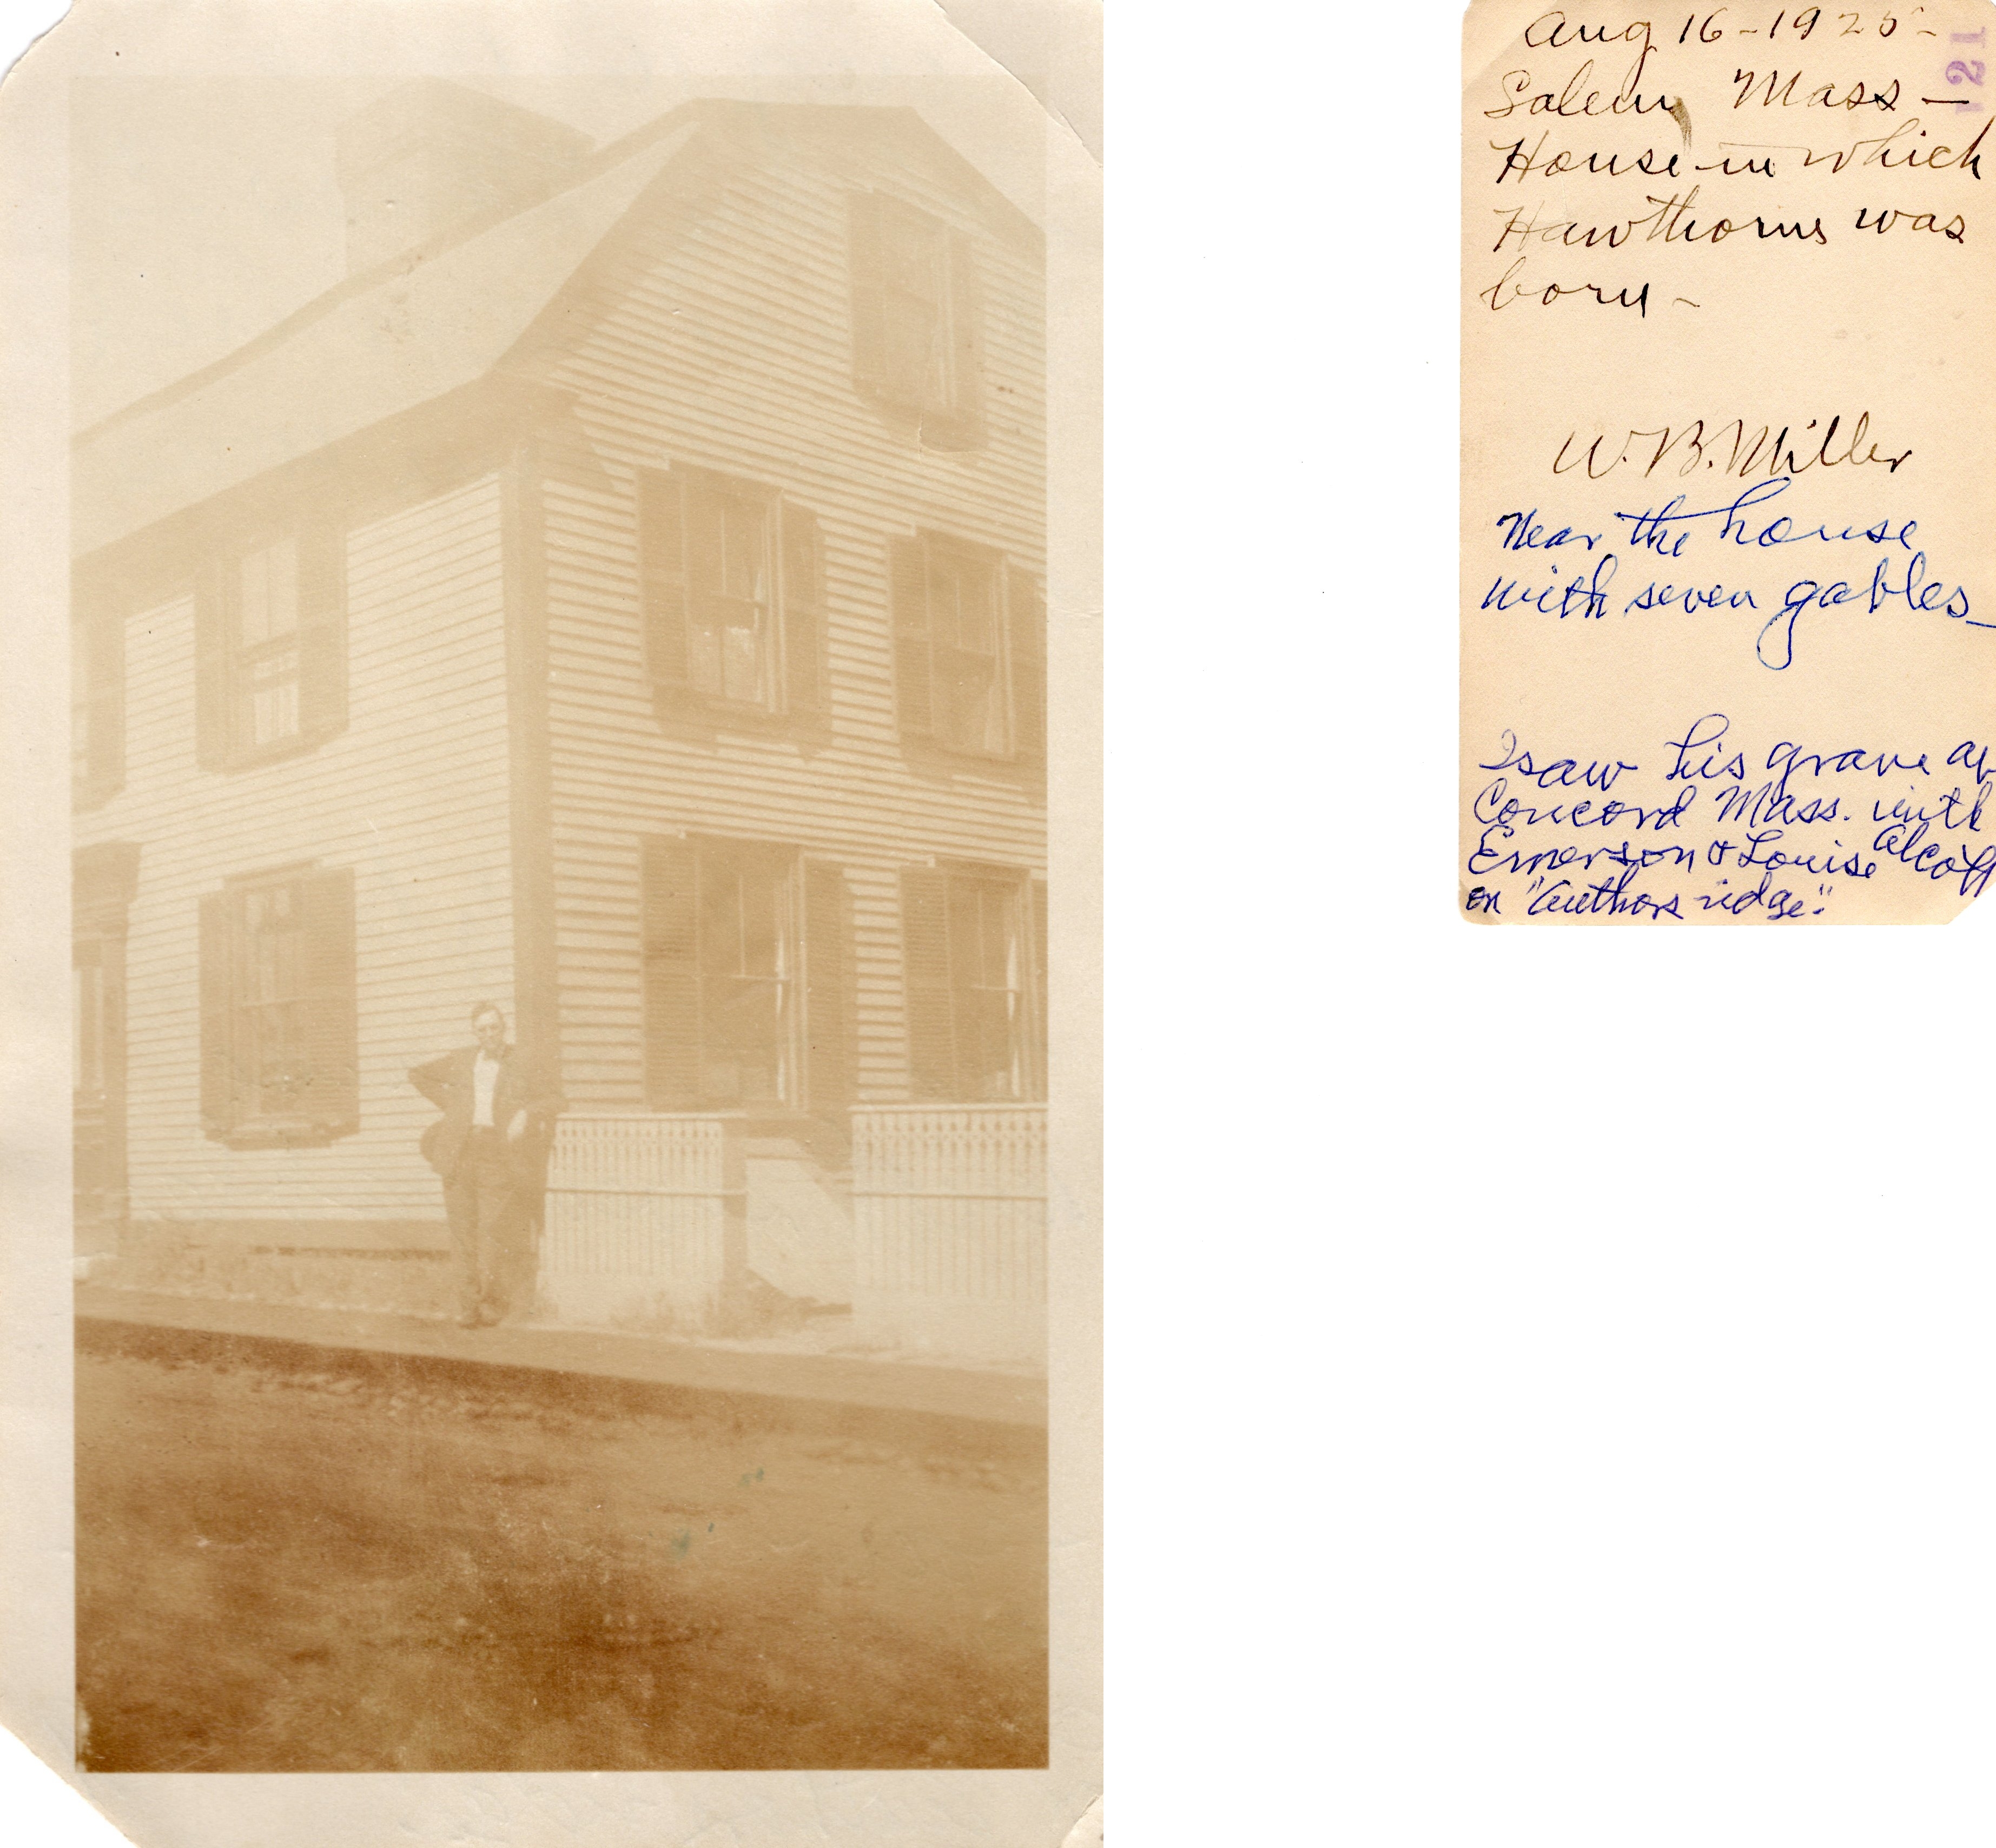 Aug 16-1925-
121
Salem Mass —
House in which
Hawthorne was
born -
W. B. Miller
Near the house
with seven gables -
I saw his grave at
Concord Mass. with
Emerson & Louise Alcott
on "Authors ridge".